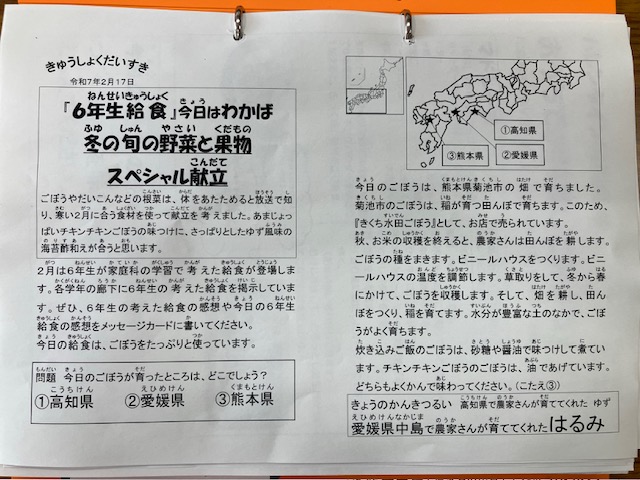 きゅうしょくだいすき
令和7年2月17日
『6年生給食』今日はわかば
冬の旬の野菜と果物
スペシャル献立
ごぼうやだいこんなどの根菜は、体をあたためると放送で知
り、寒い2月に合う食材を使って献立を考えました。あまじょっ
ぱいチキンチキンごぼうの味つけに、さっぱりとしたゆず風味の
海苔酢和えが合うと思います。
2月は6年生が家庭科の学習で考えた給食が登場しま
す。各学年の廊下に6年生の考えた給食を掲示していま
す。ぜひ、6年生の考えた給食の感想や今日の6年生
給食の感想をメッセージカードに書いてください。
今日の給食は、ごぼうをたっぷりと使っています。
問題 今日のごぼうが育ったところは、どこでしょう?
①高知県 ②愛媛県 ③熊本県
①高知県
③熊本県 ②愛媛県
今日のごぼうは、熊本県菊池市の畑で育ちました。
菊池市のごぼうは、稲が育つ田んぼで育ちます。このため、
『きくち水田ごぼう』として、お店で売られています。
秋、お米の収穫を終えると、農家さんは田んぼを耕します。
ごぼうの種をまきます。ビニールハウスをつくります。ビ
ニールハウスの温度を調節します。草取りをして、冬から春
にかけて、ごぼうを収穫します。そして、畑を耕し、田ん
ぼをつくり、稲を育てます。水分が豊富な土のなかで、ごぼ
うがよく育ちます。
炊き込みご飯のごぼうは、砂糖や醤油で味つけして煮てい
ます。チキンチキンごぼうのごぼうは、油であげています。
どちらもよくかんで味わってください。(こたえ③)
きょうのかんきつるい 高知県で農家さんが育ててくれた ゆず
愛媛県中島で農家さんが育ててくれた はるみ